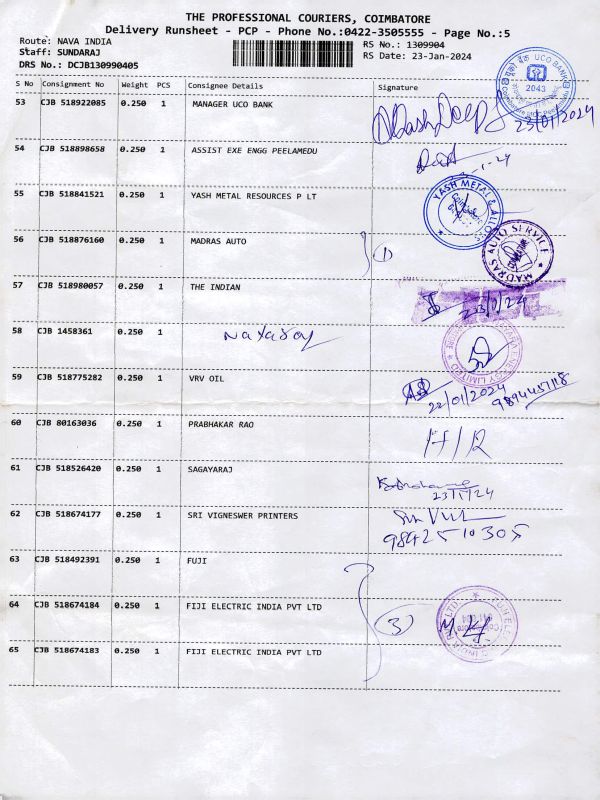 THE PROFESSIONAL COURIERS, COIMBATORE
Delivery Runsheet - PCP - Phone No.:0422-3505555 - Page No.:5
Route: NAVA INDIA
RS No.: 1309904
Staff: SUNDARAJ
RS Date: 23-Jan-2024
DRS No.: DCJB130990405
S No Consignment No Weight PCS Consignee Details Signature
53 CJB 518922085 0.250 1 MANAGER UCO BANK
UCO BANK
2043
23/01/2024
54 CJB 518898658 0.250 1 ASSIST EXE ENGG PEELAMEDU
55 CJB 518841521 0.250 1 YASH METAL RESOURCES P LT
YASH METAL & ALLOYS
56 CJB 518876160 0.250 1 MADRAS AUTO
MADRAS AUTO SERVICE
57 CJB 518980057 0.250 1 THE INDIAN
58 CJB 1458361 0.250 1
LIMITED
59 CJB 518775282 0.250 1 VRV OIL
22/01/2024
60 CJB 80163036 0.250 1 PRABHAKAR RAO
61 CJB 518526420 0.250 1 SAGAYARAJ
23/1/24
62 CJB 518674177 0.250 1 SRI VIGNESWER PRINTERS
9842510305
63 CJB 518492391 0.250 1 FUJI
64 CJB 518674184 0.250 1 FIJI ELECTRIC INDIA PVT LTD
3)
65 CJB 518674183 0.250 1 FIJI ELECTRIC INDIA PVT LTD